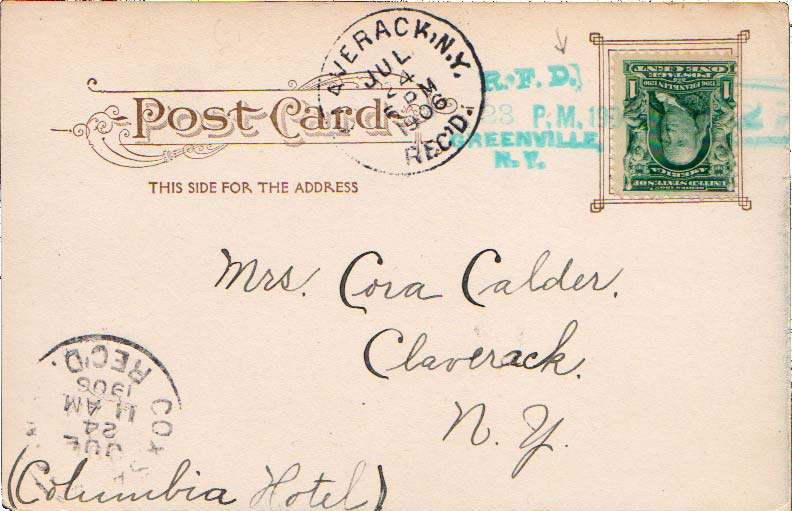 CLAVERACK, N.Y.
JUL
24
5 PM
1906
REC'D.
R.F.D.
23 P.M. 19
GREENVILLE,
N.Y.
Post Card
THIS SIDE FOR THE ADDRESS
SERIES 1902
UNITED STATES OF
AMERICA
1706 FRANKLIN 1790
1 1
POSTAGE
ONE CENT
Mrs. Cora Calder.
Claverack.
N. Y.
(Columbia Hotel)
COX
JUL
24
11 AM
1906
REC'D.